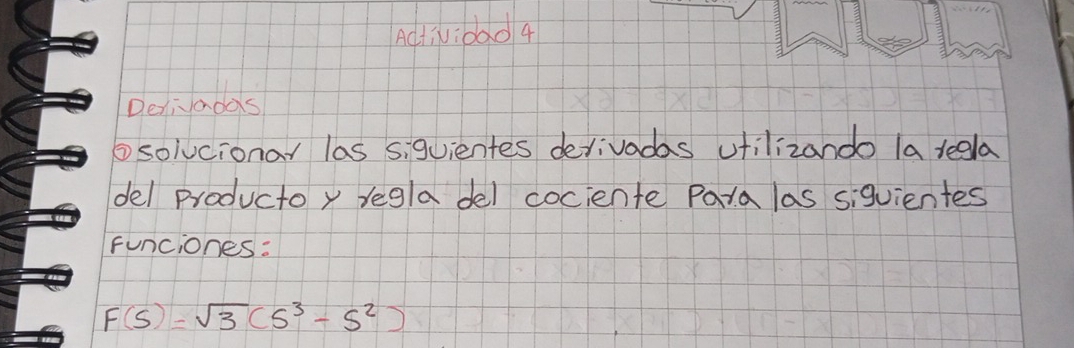 Actividad 4
Derivadas
① solucionar las siguientes derivadas utilizando la regla
del producto y regla del cociente Para las siguientes
Funciones:
F(S) = √3 (S³ - S²)